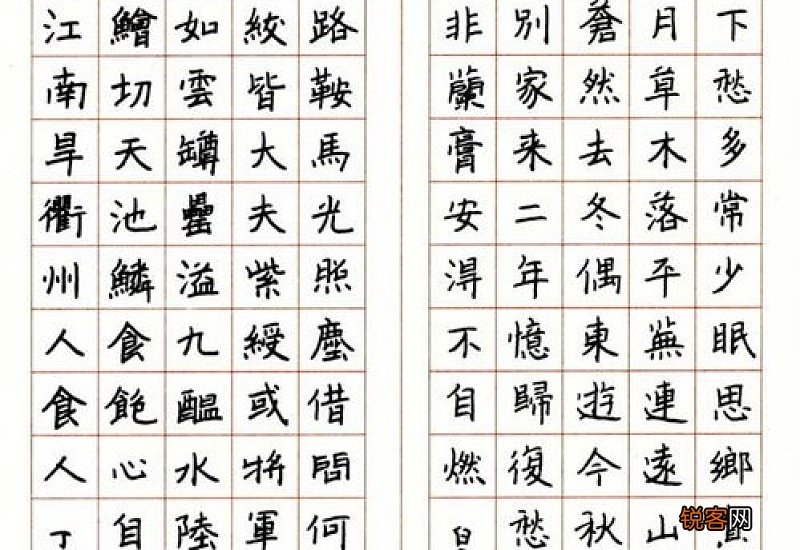 下愁多常少眠思鄉
月草木落平蕪連遠山
蒼然去冬偶東遊今秋
別家来二年憶歸復愁
非蘭膏安得不自燃
路鞍馬光照塵借問何
紱皆大夫紫綬或将軍
如雲罇罍溢九醞水陸
鱠切天池鱗食飽心自
江南旱衢州人食人
锐客网